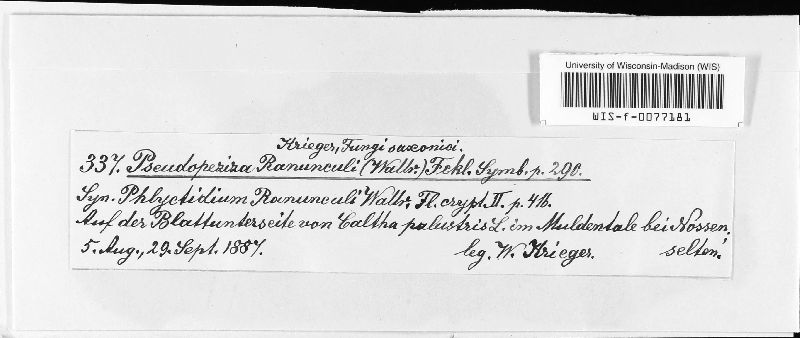 University of Wisconsin-Madison (WIS)
WIS-f-0077181
Krieger, Fungi saxonici.
337. Pseudopeziza Ranunculi (Wallr.) Fckl. Symb. p. 290.
Syn. Phlyctidium Ranunculi Wallr. Fl. crypt. II. p. 416.
Auf der Blattunterseite von Caltha palustris L. im Muldentale bei Nossen,
5. Aug., 29. Sept. 1887. leg. W. Krieger. selten!